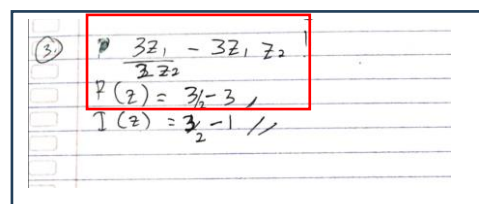 3. 3z₁/2z₂ - 3z₁ z₂
R(z) = 3/2 - 3,
I(z) = 3/2 - 1 //